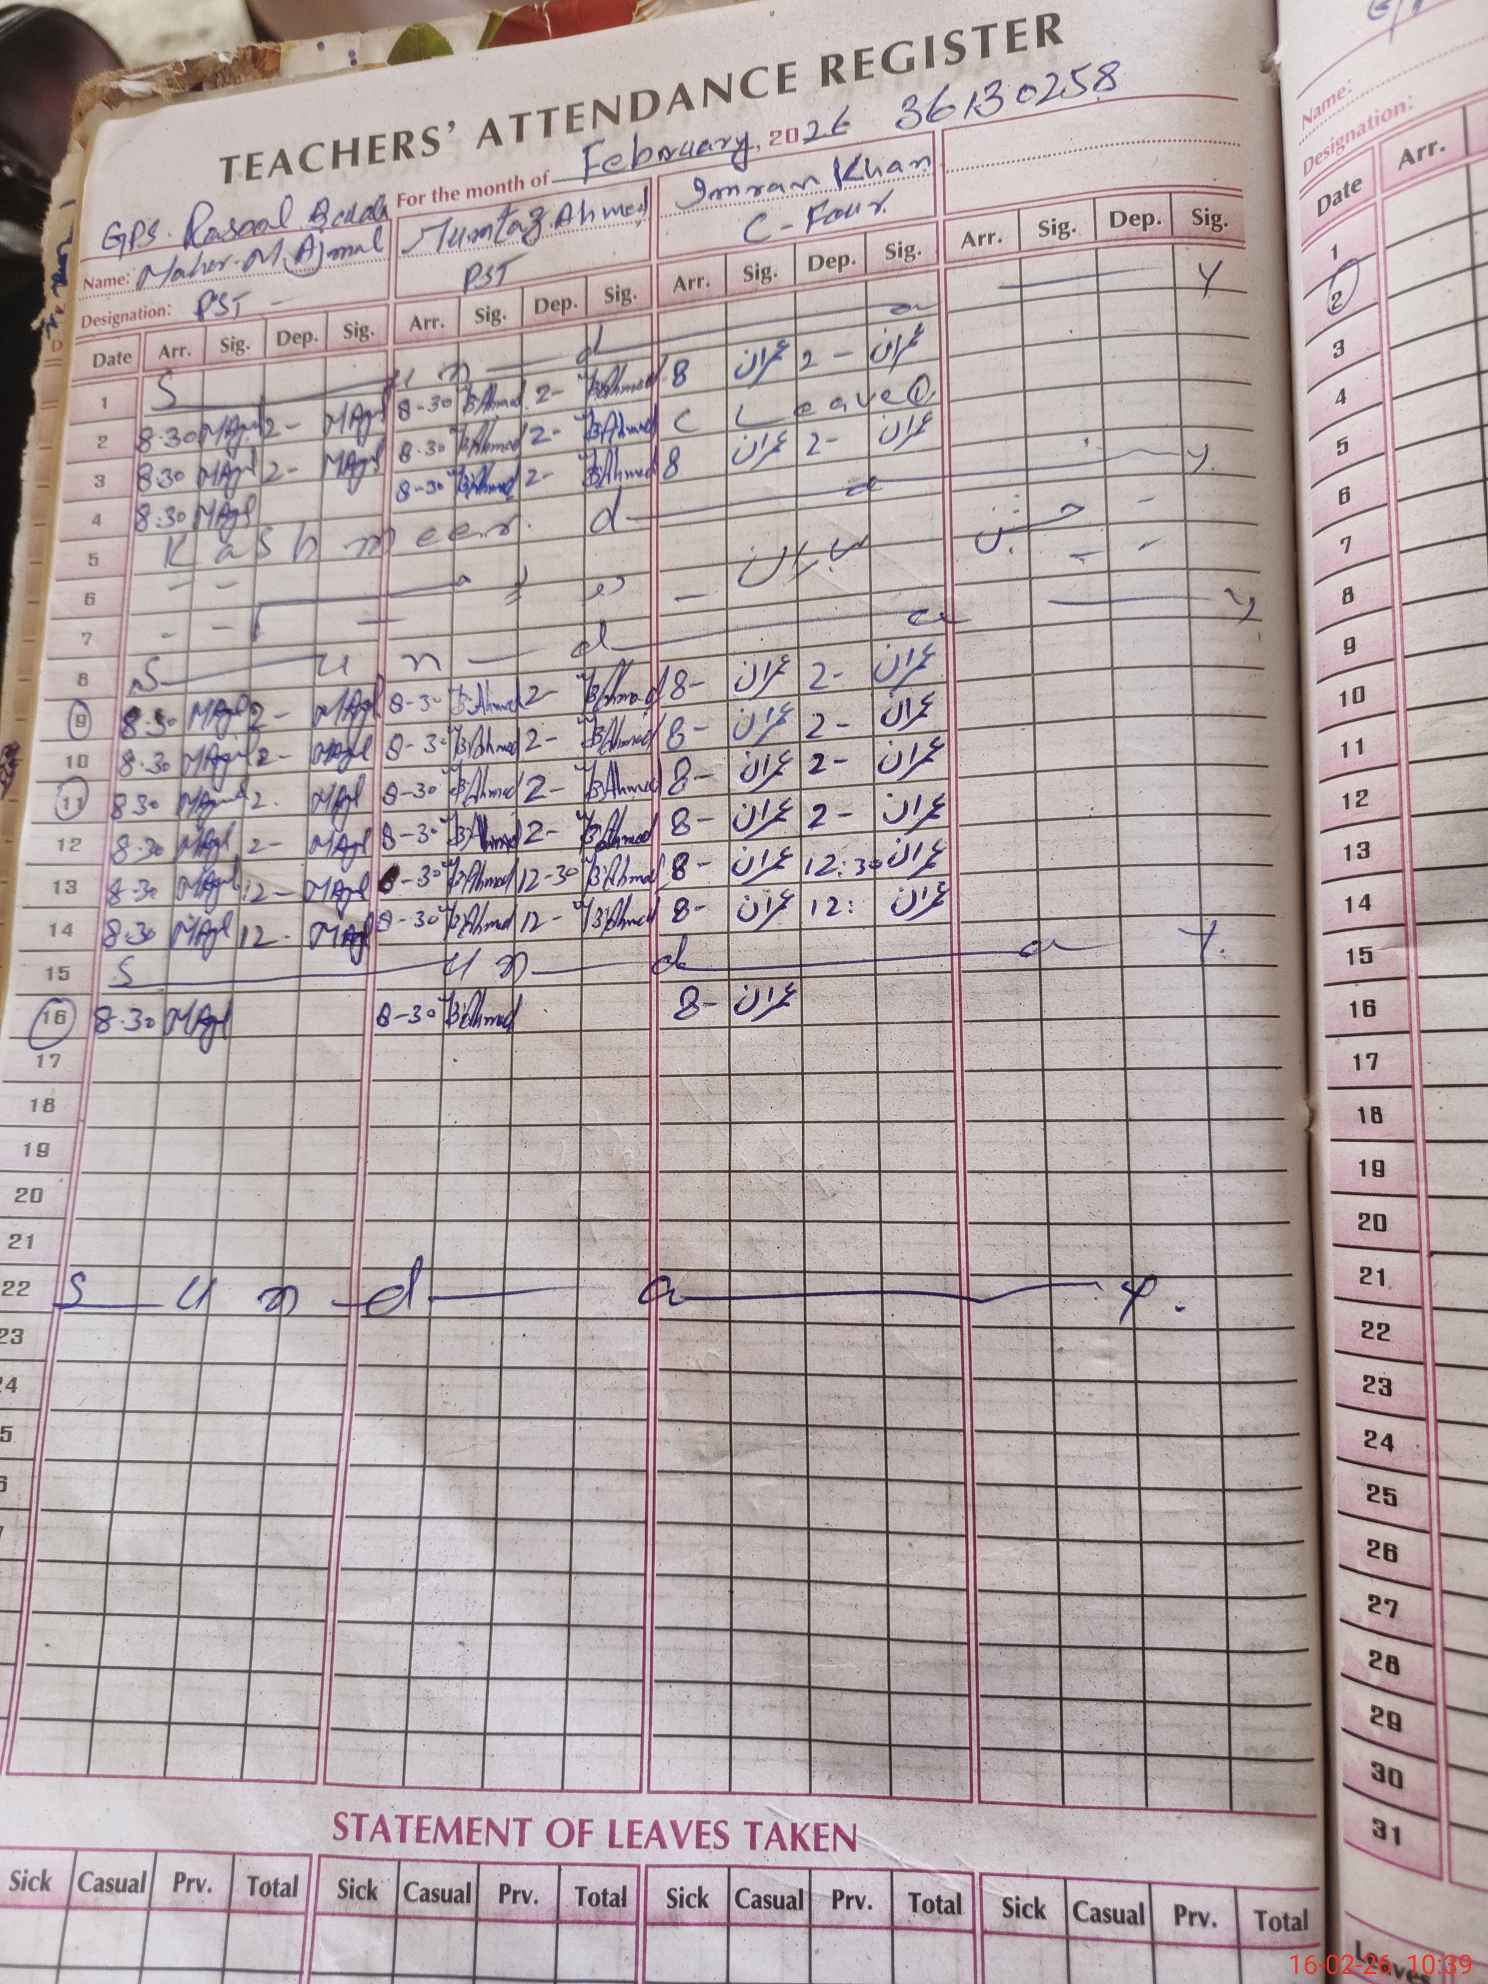 TEACHERS' ATTENDANCE REGISTER
For the month of February, 2026 36130258
GPS. Rasool
Name: Maher. M. Ajmal Mumtaz Ahmed Imran Khan
Designation: PST PST C-Four
Date Arr. Sig. Dep. Sig. Arr. Sig. Dep. Sig. Arr. Sig. Dep. Sig. Arr. Sig. Dep. Sig.
1 S u n d a y
2 8.30 MAjml 2- MAjml 8-30 Ahmed 2- Ahmed 8 عمران 2- عمران
3 8.30 MAjml 2- MAjml 8-30 Ahmed 2- Ahmed C Leave ①
4 8.30 MAjml 8-30 Ahmed 2- Ahmed 8 عمران 2- عمران
5 Kashmeer d a y
6 جشن
7
8 S u n d a y
9 8.30 MAjml 2- MAjml 8-30 Ahmed 2- Ahmed 8- عمران 2- عمران
10 8.30 MAjml 2- MAjml 8-30 Ahmed 2- Ahmed 8- عمران 2- عمران
11 8.30 MAjml 2- MAjml 8-30 Ahmed 2- Ahmed 8- عمران 2- عمران
12 8.30 MAjml 2- MAjml 8-30 Ahmed 2- Ahmed 8- عمران 2- عمران
13 8.30 MAjml 12- MAjml 8-30 Ahmed 12-30 Ahmed 8- عمران 12:30 عمران
14 8.30 MAjml 12- MAjml 8-30 Ahmed 12- Ahmed 8- عمران 12: عمران
15 S u n d a y
16 8.30 MAjml 8-30 Ahmed 8- عمران
17
18
19
20
21
22 S u n d a y.
23
STATEMENT OF LEAVES TAKEN
Sick Casual Prv. Total Sick Casual Prv. Total Sick Casual Prv. Total Sick Casual Prv. Total
Name:
Designation:
Date Arr.
1
2
3
4
5
6
7
8
9
10
11
12
13
14
15
16
17
18
19
20
21
22
23
24
25
26
27
28
29
30
31
16-02-26 10:39